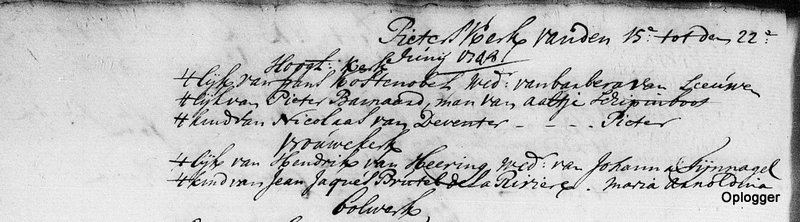 Pieters Kerk vanden 15e tot den 22e
Junij 1748
Hoogl: Kerk
't lijk van Hans Kostenobel wed: van barbera van Leeuwen
't lijk van Pieter Barnaard, man van aaltje Schipinboot
't kind van Nicolaas van Deventer - - - - Pieter
vrouwekerk
't lijk van Hendrik van Heering wed: van Johanna Fijnnagel
't kind van Jean Jaques Brutel de la Riviere. maria arnoldina
bolwerk
Oplogger